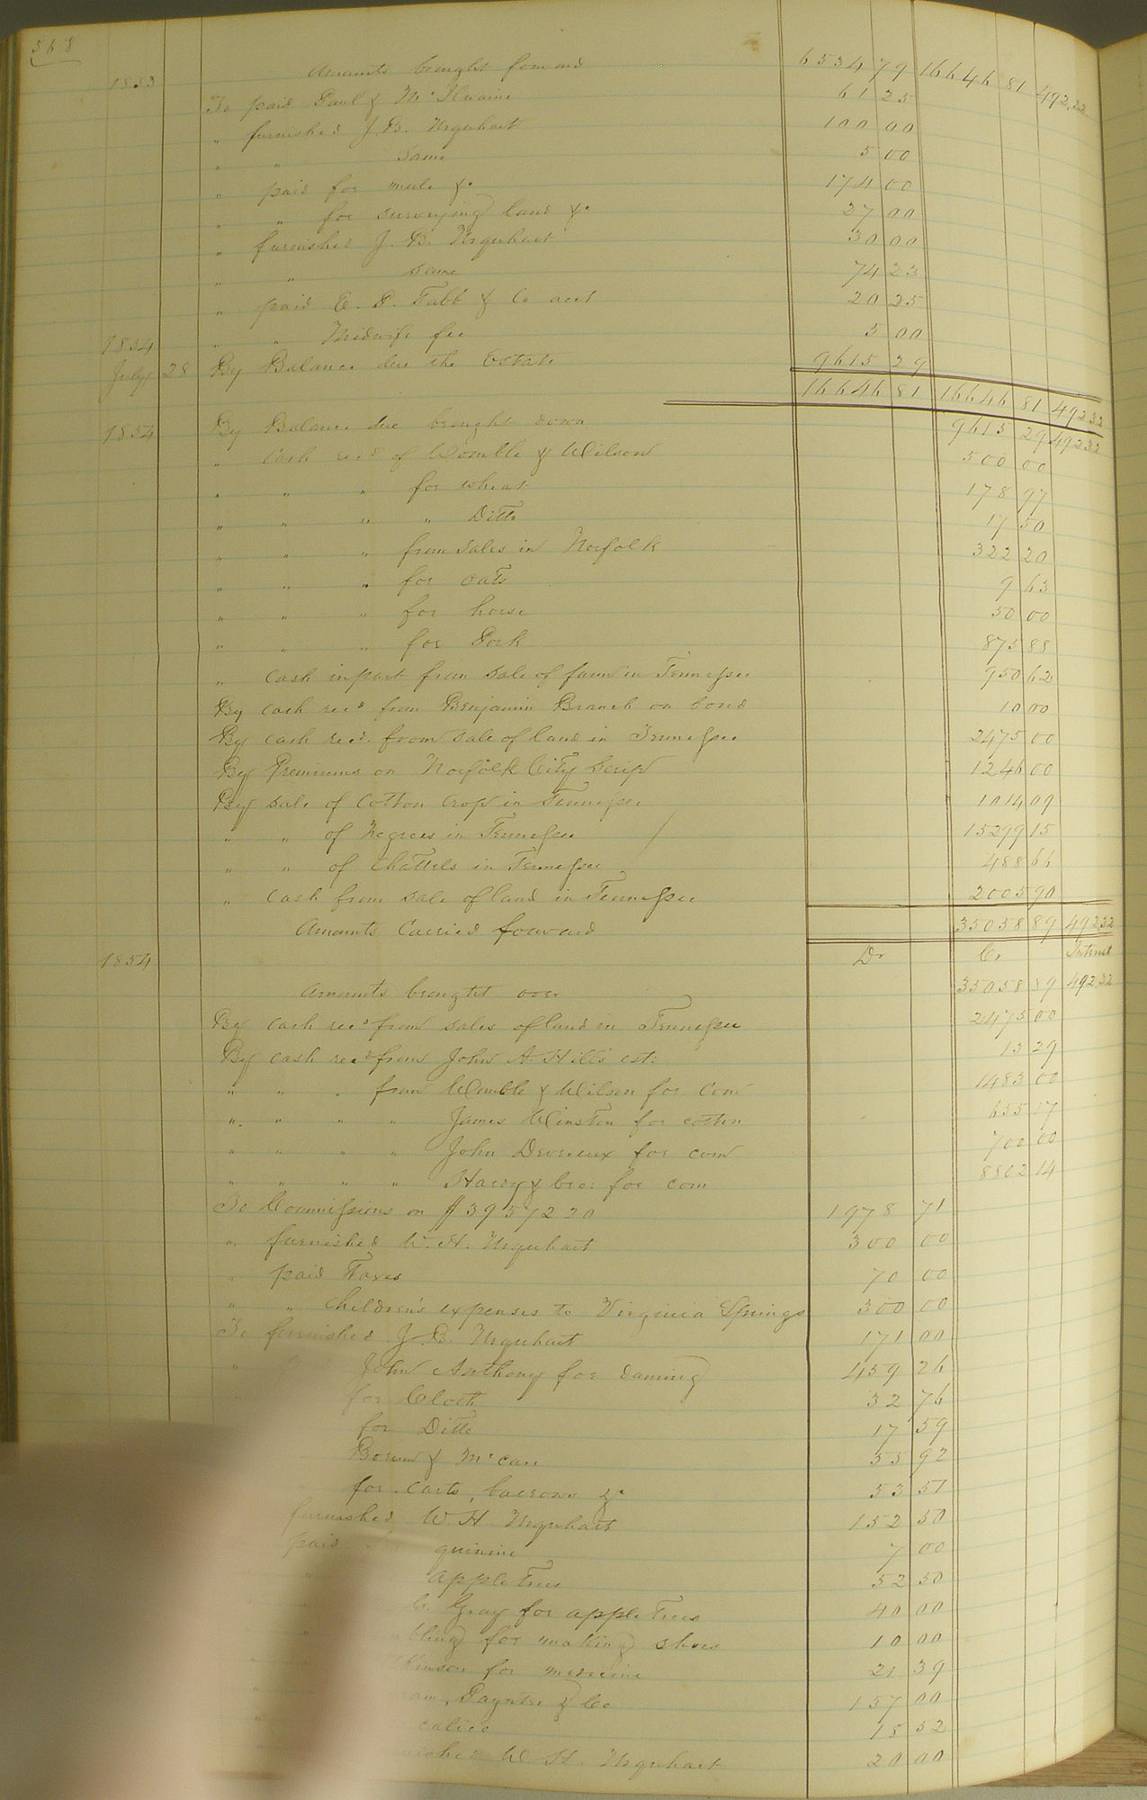 568
1853 Amounts brought forward 6534 79 16646 81 492.32
To paid Paul & McIlwaine 61 25
" furnished J. B. Urquhart 100 00
" " Same 5 00
" paid for mule &c 174 00
" " for surveying land &c 27 00
" furnished J. B. Urquhart 30 00
" " Same 74 23
" paid E. P. Tabb & Co acct 20 25
1854 " " Midwife fee 5 00
July 28 By Balance due the Estate 9615 29
16646 81 16646 81 492 32
1854 By Balance due brought down 9615 29 492 32
" Cash recd of Womble & Wilson 500 00
" " " for wheat 178 97
" " " " Ditto 17 50
" " " from sales in Norfolk 322 20
" " " for oats 9 63
" " " for horse 50 00
" " " for Pork 875 88
" Cash in part from sale of farm in Tennessee 950 62
By cash recd from Benjamin Branch on bond 10 00
By cash recd. from sale of land in Tennessee 2475 00
By Premiums on Norfolk City Scrip 1246 00
By sale of Cotton Crop in Tennessee 1014 09
" " of Negroes in Tennessee 15299 15
" " of Chattels in Tennessee 488 66
" Cash from sale of land in Tennessee 2005 90
Amounts Carried forward 35058 89 492 32
1854 Dr Cr Interest
Amounts brought over 35058 89 492 32
By cash recd from sales of land in Tennessee 2475 00
By cash recd from John A Hill's est. 13 29
" " " from Womble & Wilson for Corn 1483 00
" " " " James Winston for cotton 655 17
" " " " John Devereux for corn 700 00
" " " " Hardy & bro: for corn 8802 14
To Commissions on $39572 20 1978 71
" furnished W. H. Urquhart 300 00
" paid Taxes 70 00
" " children's expenses to Virginia Springs 300 00
To furnished J. B. Urquhart 171 00
" John Anthony for 459 26
for Cloth 32 76
for Ditto 17 59
& McCan 35 92
for carts, barrows &c 53 51
furnished W H Urquhart 152 50
paid quinine 7 00
apple Trees 52 50
C. Gray for apple Trees 40 00
for making shoes 10 00
for medicine 21 39
Paynter & Co 157 00
calico 15 52
W. H. Urquhart 20 00